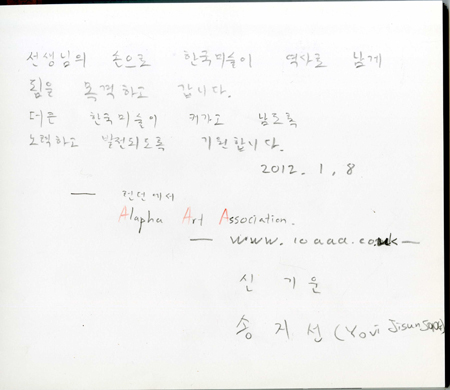 선생님의 손으로 한국미술이 역사로 남게
됨을 목격하고 갑니다.
더큰 한국미술이 커가고 남도록
노력하고 발전되도록 기원합니다.
2012. 1. 8
— 런던에서
Alapha Art Association.
— www.10aaa.co.uk —
신기운
송지선 (Youi Jisun